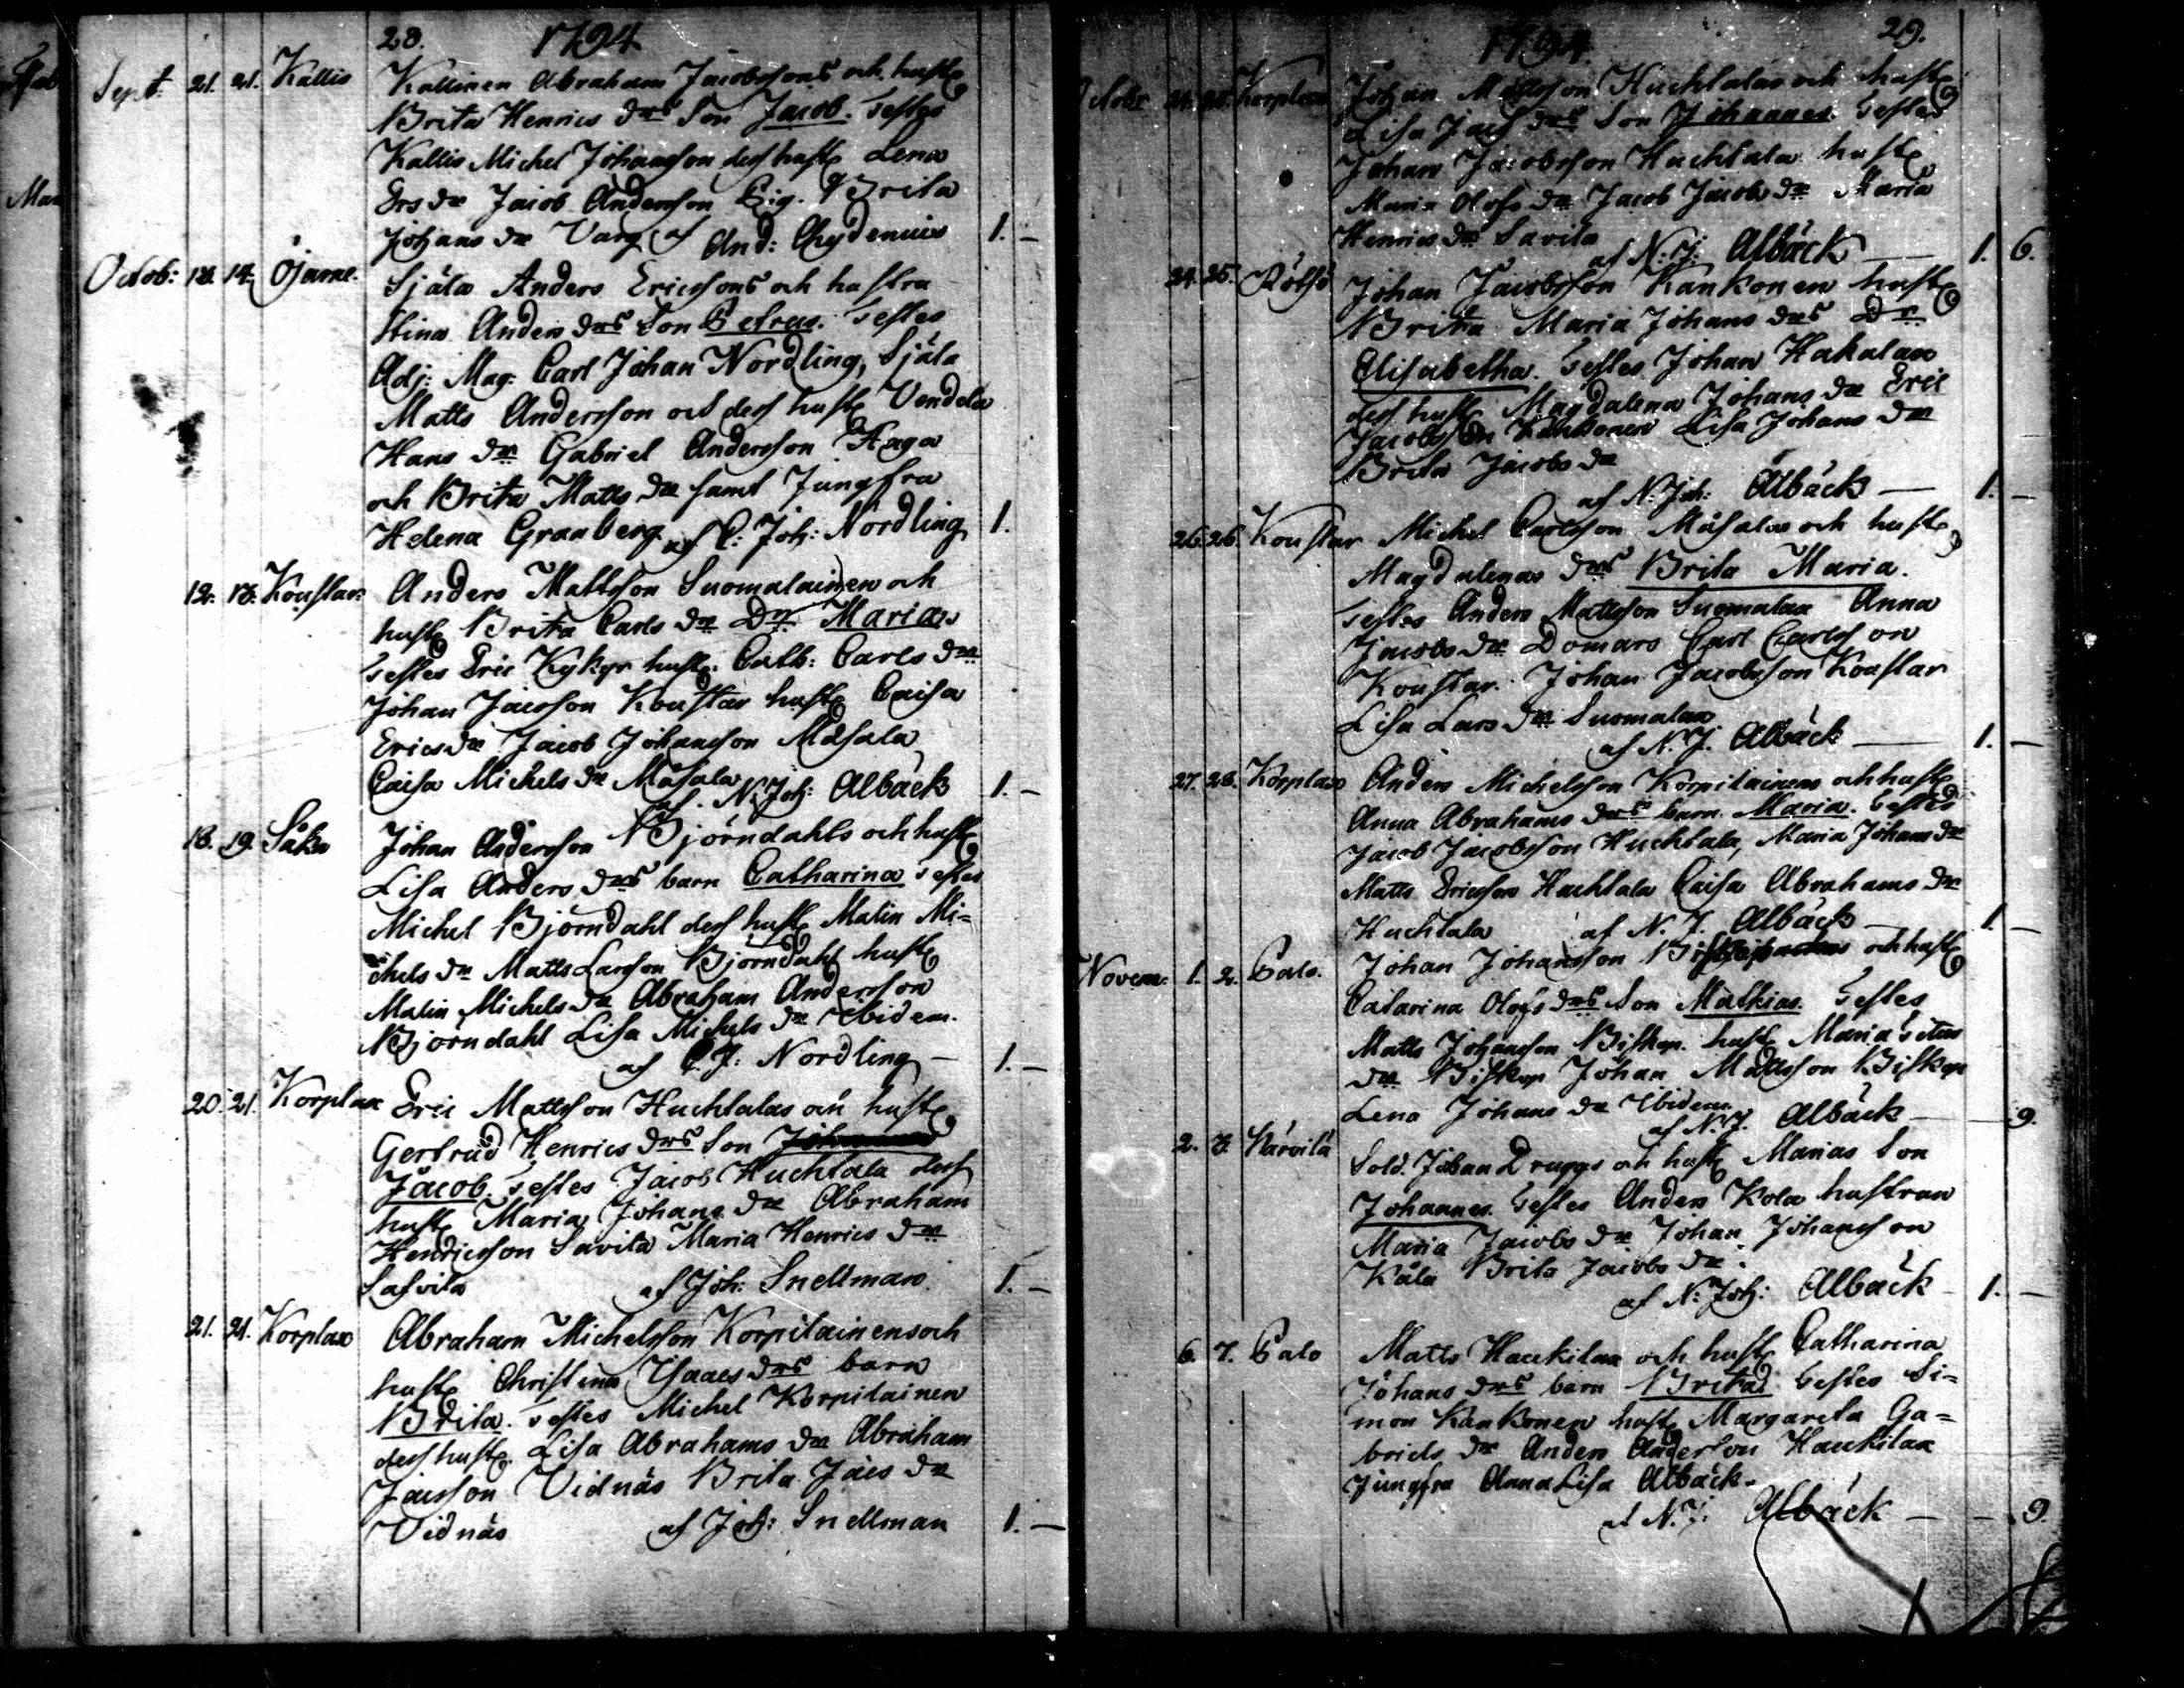 28. 1794
Sept. 21. 21. Kallis Kallinen Abraham Jacobssons och hust
Brita Henrics drs Son Jacob. Testes
Kallis Michel Johansson dess hust Lena
Ers dr Jacob Andersson Eig. Brita
Johans dr Varg af And: Chydenius 1. –
Octob: 13. 14. Öjame. Själa Anders Ericssons och hustru
Stina Anders drs Son Petrus. Testes
Adj: Mag: Carl Johan Nordling, Själa
Matts Andersson och dess hust Vendela
Hans dr Gabriel Andersson Haga
och Brita Matts dr samt Jungfru
Helena Granberg af C: Joh: Nordling 1.
12. 13. Koustar Anders Mattsson Suomalainen och
hust Brita Carls dr Dr Maria
Testes Eric Kykyr hust. Cath: Carls dr
Johan Jacosson Koustar hust Caisa
Erics dr Jacob Johansson Måsala
Caisa Michels dr Måsala af N: Joh: Albäck 1. –
18. 19. Såka Johan Andersson Björndahls och hust
Lisa Anders drs barn Catharina Testes
Michel Björndahl dess hust Malin Mi=
chels dr Matts Larsson Björndahl hust
Malin Michels dr Abraham Andersson
Björndahl Lisa Michels dr Ibidem.
af C. J: Nordling – 1. –
20. 21. Korplax Eric Mattsson Huchtalas och hust
Gertrud Henrics drs Son
Jacob. Testes Jacob Huchtala dess
hust Maria Johans dr Abraham
Hendricsson Savila Maria Henrics dr
Safvila af Joh: Snellman. 1. –
21. 21. Korplax Abraham Michelsson Korpilainens och
hust Christina Isaacs drs barn
Brita. Testes Michel Korpilainen
dess hust. Lisa Abrahams dr Abraham
Jacsson Vidnäs Brita Jacs dr
Vidnäs af Joh: Snellman 1. –
1794. 29.
Octobr 24. 25. Korplax Johan Mattsson Huchtalas och hust
Lisa Jacs drs Son Johannes. Testes
Johan Jacobsson Huchtala hust
Maria Olofs dr Jacob Jacobs dr Maria
Henrics dr Savila
af N: J: Albäck — 1. 6.
24. 25. Rötsö Johan Jacobsson Kankonen hust
Brita Maria Johans drs Dr
Elisabetha. Testes Johan Hakalax
dess hust Magdalena Johans dr Eric
Jacobsson Kankonen Lisa Johans dr
Brita Jacobs dr
af N: Joh: Albäck — 1. –
26. 26. Koustar Michel Carlsson Måsalas och hust
Magdalenas drs Brita Maria.
Testes Anders Mattsson Suomalax Anna
Jacobs dr Domars Carl Carlsson
Koustar. Johan Jacobsson Koustar
Lisa Lars dr Suomalax.
af N. J. Albäck — 1. –
27. 28. Korplax Anders Michelsson Korpilainens och hust
Anna Abrahams drs barn Maria. Testes
Jacob Jacobsson Huchtala, Maria Johans dr
Matts Ericsson Huchtala Caisa Abrahams dr
Huchtala af N. J. Albäck — 1. –
Novem. 1. 2. Palo. Johan Johansson och hust
Catarina Olofs drs Son Mathias. Testes
Matts Johansson Biskop. hust Maria
dr Biskop Johan Mattsson Biskop
Lena Johans dr Ibidem.
af N: J. Albäck — 9.
2. 3. Närvilä Sold. Johan Druggs och hust Marias Son
Johannes. Testes Anders Kola hustrun
Maria Jacobs dr Johan Johansson
Kåla Brita Jacobs dr.
af N: Joh: Albäck – 1. –
6. 7. Palo Matts Haukilax och hust Catharina
Johans drs barn Brita. Testes Si=
mon Kankonen hust Margareta Ga=
briels dr Anders Andersson Haukilax
Jungfru Anna Lisa Albäck.
af N. J: Albäck — – 9.